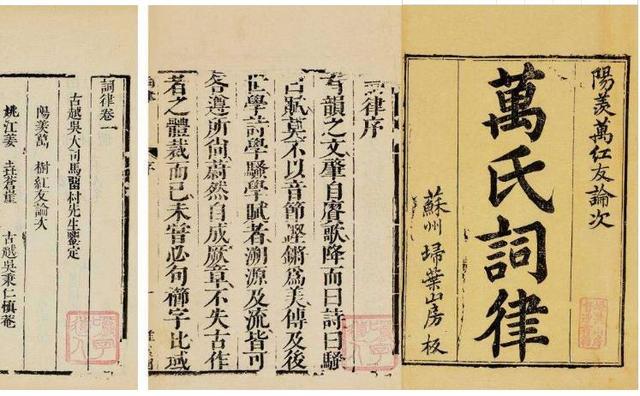 陽羨萬紅友論次
萬氏詞律
蘇州埽葉山房板
詞律序
有韻之文肇自賡歌降而曰詩曰騷
曰賦莫不以音節鏗鏘為美傳及後
世學詩學騷學賦者溯源及流皆可
各遵所尚蔚然自成厥章不失古作
者之體裁而已未嘗必句櫛字比域
詞律卷一
古越吳大司馬留村先生鑒定
陽羨萬 樹紅友論次
姚江姜 垚蒼崖 古越吳秉仁慎菴